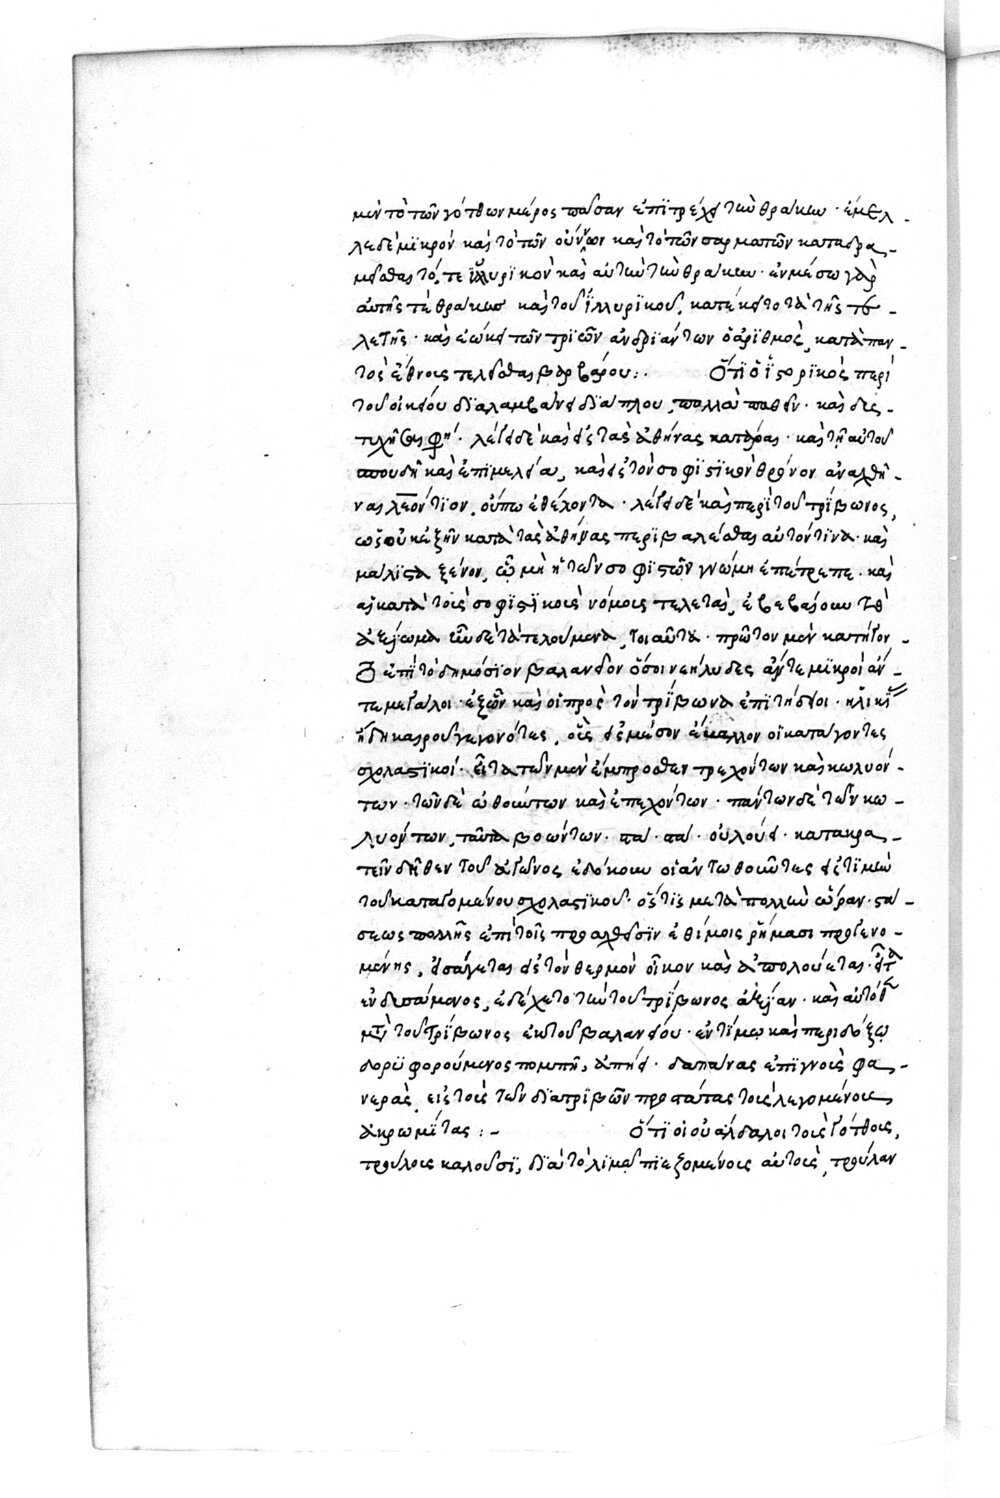 μὲν τὸ τῶν γότθων μέρος πᾶσαν ἐπιτρέχει τὴν θράκην· ἔμελ-
λε δὲ μικρὸν καὶ τὸ τῶν οὔννων καὶ τὸ τῶν σαρματῶν καταδρα-
μεῖσθαι τό, τε ἰλλυρικὸν καὶ αὐτὴν τὴν θράκην· ἐν μέσω γὰρ
αὐτῆς τε θράκης καὶ τοῦ ἰλλυρικοῦ, κατέκειτο τὰ τῆς τε-
λετῆς· καὶ ἐώκει τῶν τριῶν ἀνδριάντων ὁ ἀριθμὸς, κατὰ παν-
τὸς ἔθνους τελεῖσθαι βαρβάρου:. Ὅτι ὁ ἱστορικὸς περὶ
τοῦ οἰκείου διαλαμβάνει διάπλου, πολλὰ παθεῖν· καὶ δυσ-
τυχῆσαι φησί· λέγει δὲ καὶ εἰς τὰς ἀθήνας κατᾶραι· καὶ τῆ αὐτοῦ
σπουδῆ καὶ ἐπιμελεία, καὶ εἰς τὸν σοφιστικὸν θρόνον ἀναχθῆ-
ναι λεόντιον, οὔπω ἐθέλοντα· λέγει δὲ καὶ περὶ τοῦ τρίβωνος,
ὡς οὐκ ἐξῆν κατὰ τὰς ἀθήνας περιβαλέσθαι αὐτὸν τινὰ· καὶ
μάλιστα ξένον, ὧ μὴ ἡ τῶν σοφιστῶν γνώμη ἐπέτρεπε· καὶ
αἱ κατὰ τοὺς σοφιστικοὺς νόμους τελεταὶ, ἐβεβαίουν τὸ
ἀξίωμα ἦν δὲ τὰ τελούμενα, τοιαῦτα· πρῶτον μὲν κατήγον-
το ἐπὶ τὸ δημόσιον βαλανεῖον ὅσοι νεήλυδες ἄν τε μικροὶ ἄν-
τε μεγάλοι· ἐξ ὧν καὶ οἱ πρὸς τὸν τρίβωνα ἐπιτήδειοι· ἡλικίας
ἤδη καιροῦ γεγονότες, οὓς εἰς μέσον ἔβαλλον οἱ κατάγοντες
σχολαστικοί· εἶτα τῶν μὲν ἔμπροσθεν τρεχόντων καὶ κωλυόν-
των· τῶν δὲ ὠθούντων καὶ ἐπεχόντων· πάντων δὲ τῶν κω-
λυόντων, ταῦτα βοώντων· στᾶ· στᾶ· οὐ λούει· κατακρα-
τεῖν δῆθεν τοῦ ἀγῶνος ἐδόκουν οἱ ἀντωθοῦντες εἰς τιμὴν
τοῦ καταγομένου σχολαστικοῦ· ὅστις μετὰ πολλὴν ὥραν· στά-
σεως πολλῆς ἐπὶ τοῖς προαχθεῖσιν ἐθίμοις ῥήμασι προγενο-
μένης, εἰσάγεται εἰς τὸν θερμὸν οἶκον καὶ ἀπολούεται· εἶτα
ἐνδυσάμενος, ἐδέχετο τὴν τοῦ τρίβωνος ἀξίαν· καὶ αὐτόθεν
μετὰ τοῦ τρίβωνος ἐκ τοῦ βαλανείου· ἐντίμω καὶ περιδόξω
δορυφορούμενος πομπῆ, ἀπήει· δαπάνας ἐπιγνοὺς φα-
νερὰς, εἰς τοὺς τῶν διατριβῶν προστάτας τοὺς λεγομένους
ἀκρωμίτας:- Ὅτι οἱ οὐάνδαλοι τοὺς γότθους,
τρούλους καλοῦσι, διὰ τὸ λιμῶ πιεζομένους αὐτοὺς, τρούλαν